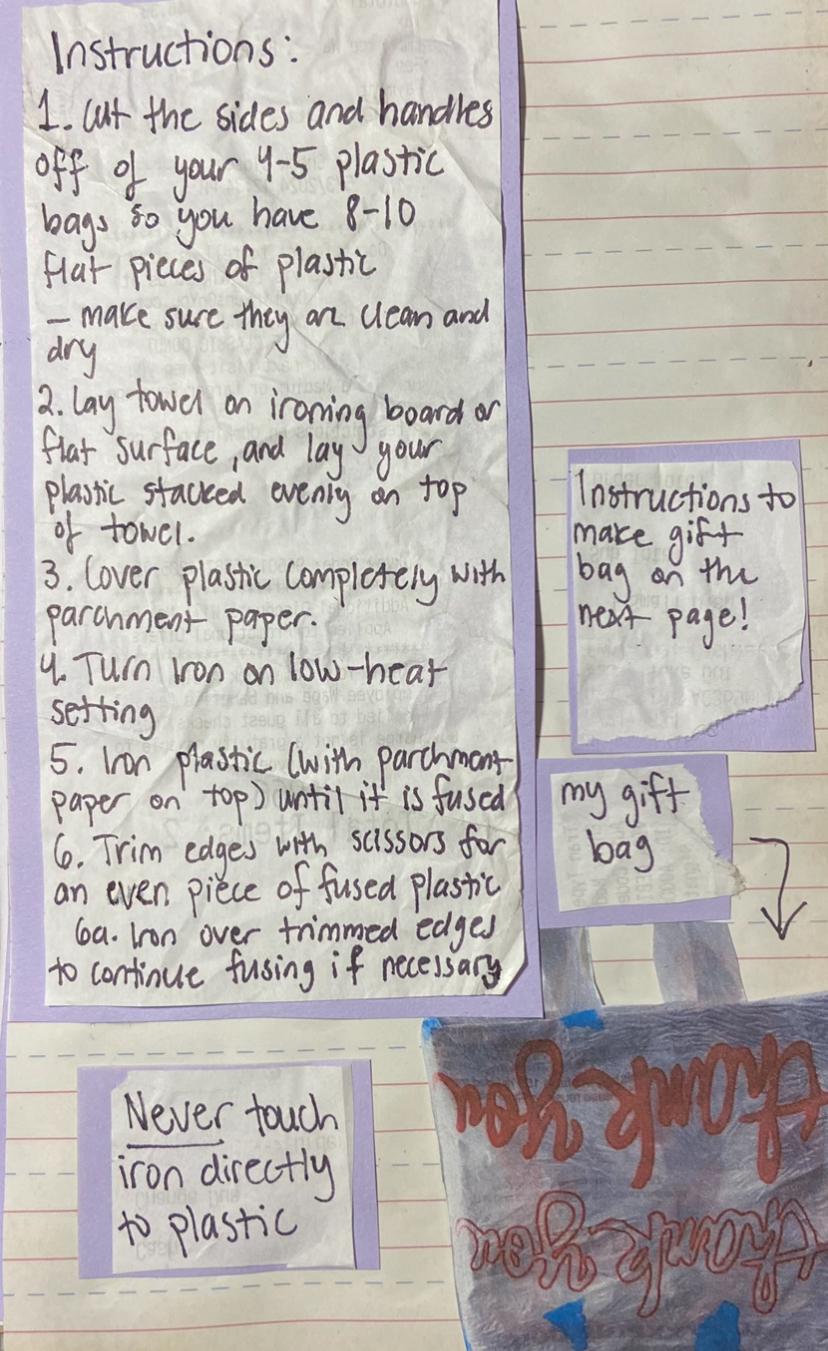 Instructions:
1. Cut the sides and handles
off of your 4-5 plastic
bags so you have 8-10
flat pieces of plastic
- make sure they are clean and
dry
2. Lay towel on ironing board or
flat surface, and lay your
plastic stacked evenly on top
of towel.
3. Cover plastic completely with
parchment paper.
4. Turn Iron on low-heat
setting
5. Iron plastic (with parchment
paper on top) until it is fused
6. Trim edges with scissors for
an even piece of fused plastic
6a. Iron over trimmed edges
to continue fusing if necessary
Never touch
iron directly
to plastic
Instructions to
make gift
bag on the
next page!
my gift
bag
thank you
thank you